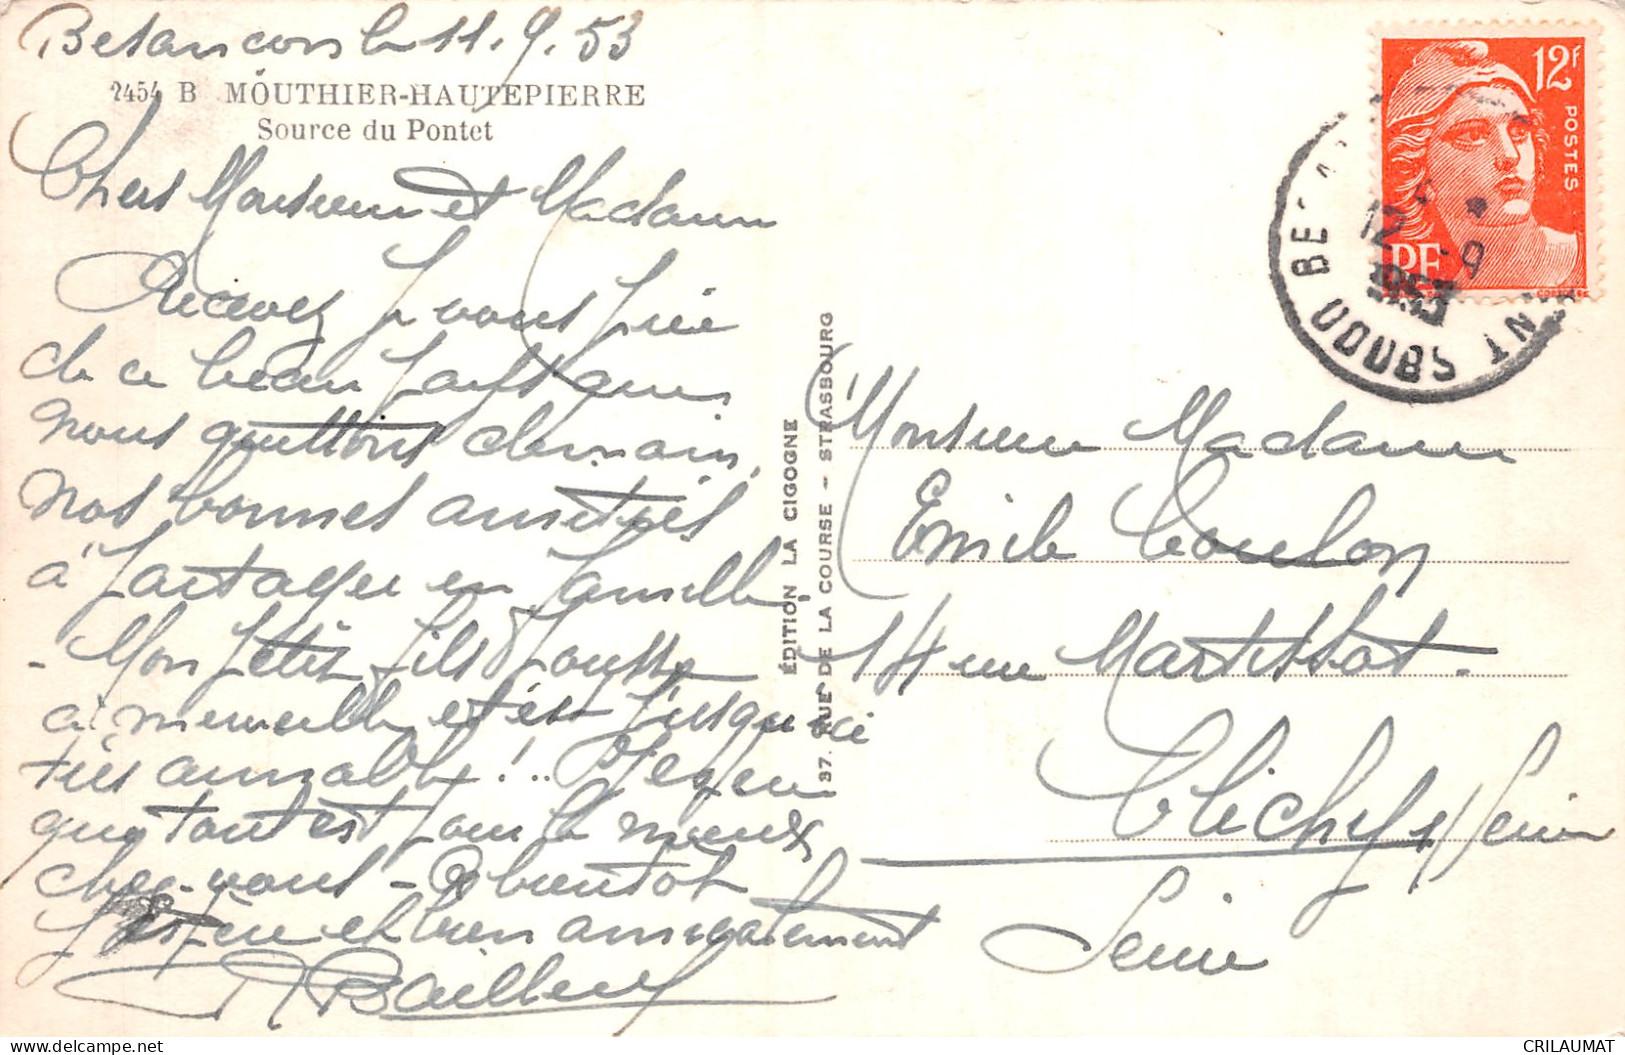 Besancon le 11.9.53
2454 B MOUTHIER-HAUTEPIERRE
Source du Pontet
Chers Monsieur et Madame
Recevez je vous prie
de ce beau pays que
nous quittons demain,
nos bonnes amitiés
à partager en famille
- Mon petit fils pousse
à merveille et est jusqu'ici
très aimable !..
que tout est pour le mieux
chez-vous - A bientot
et bien amicalement
ÉDITION LA CIGOGNE
37. RUE DE LA COURSE - STRASBOURG
12F
POSTES
RF
12 -9
1953
DOUBS
Monsieur Madame
Emile Coulon
14 rue Martissot -
Clichy s/ Seine
Seine
CRILAUMAT